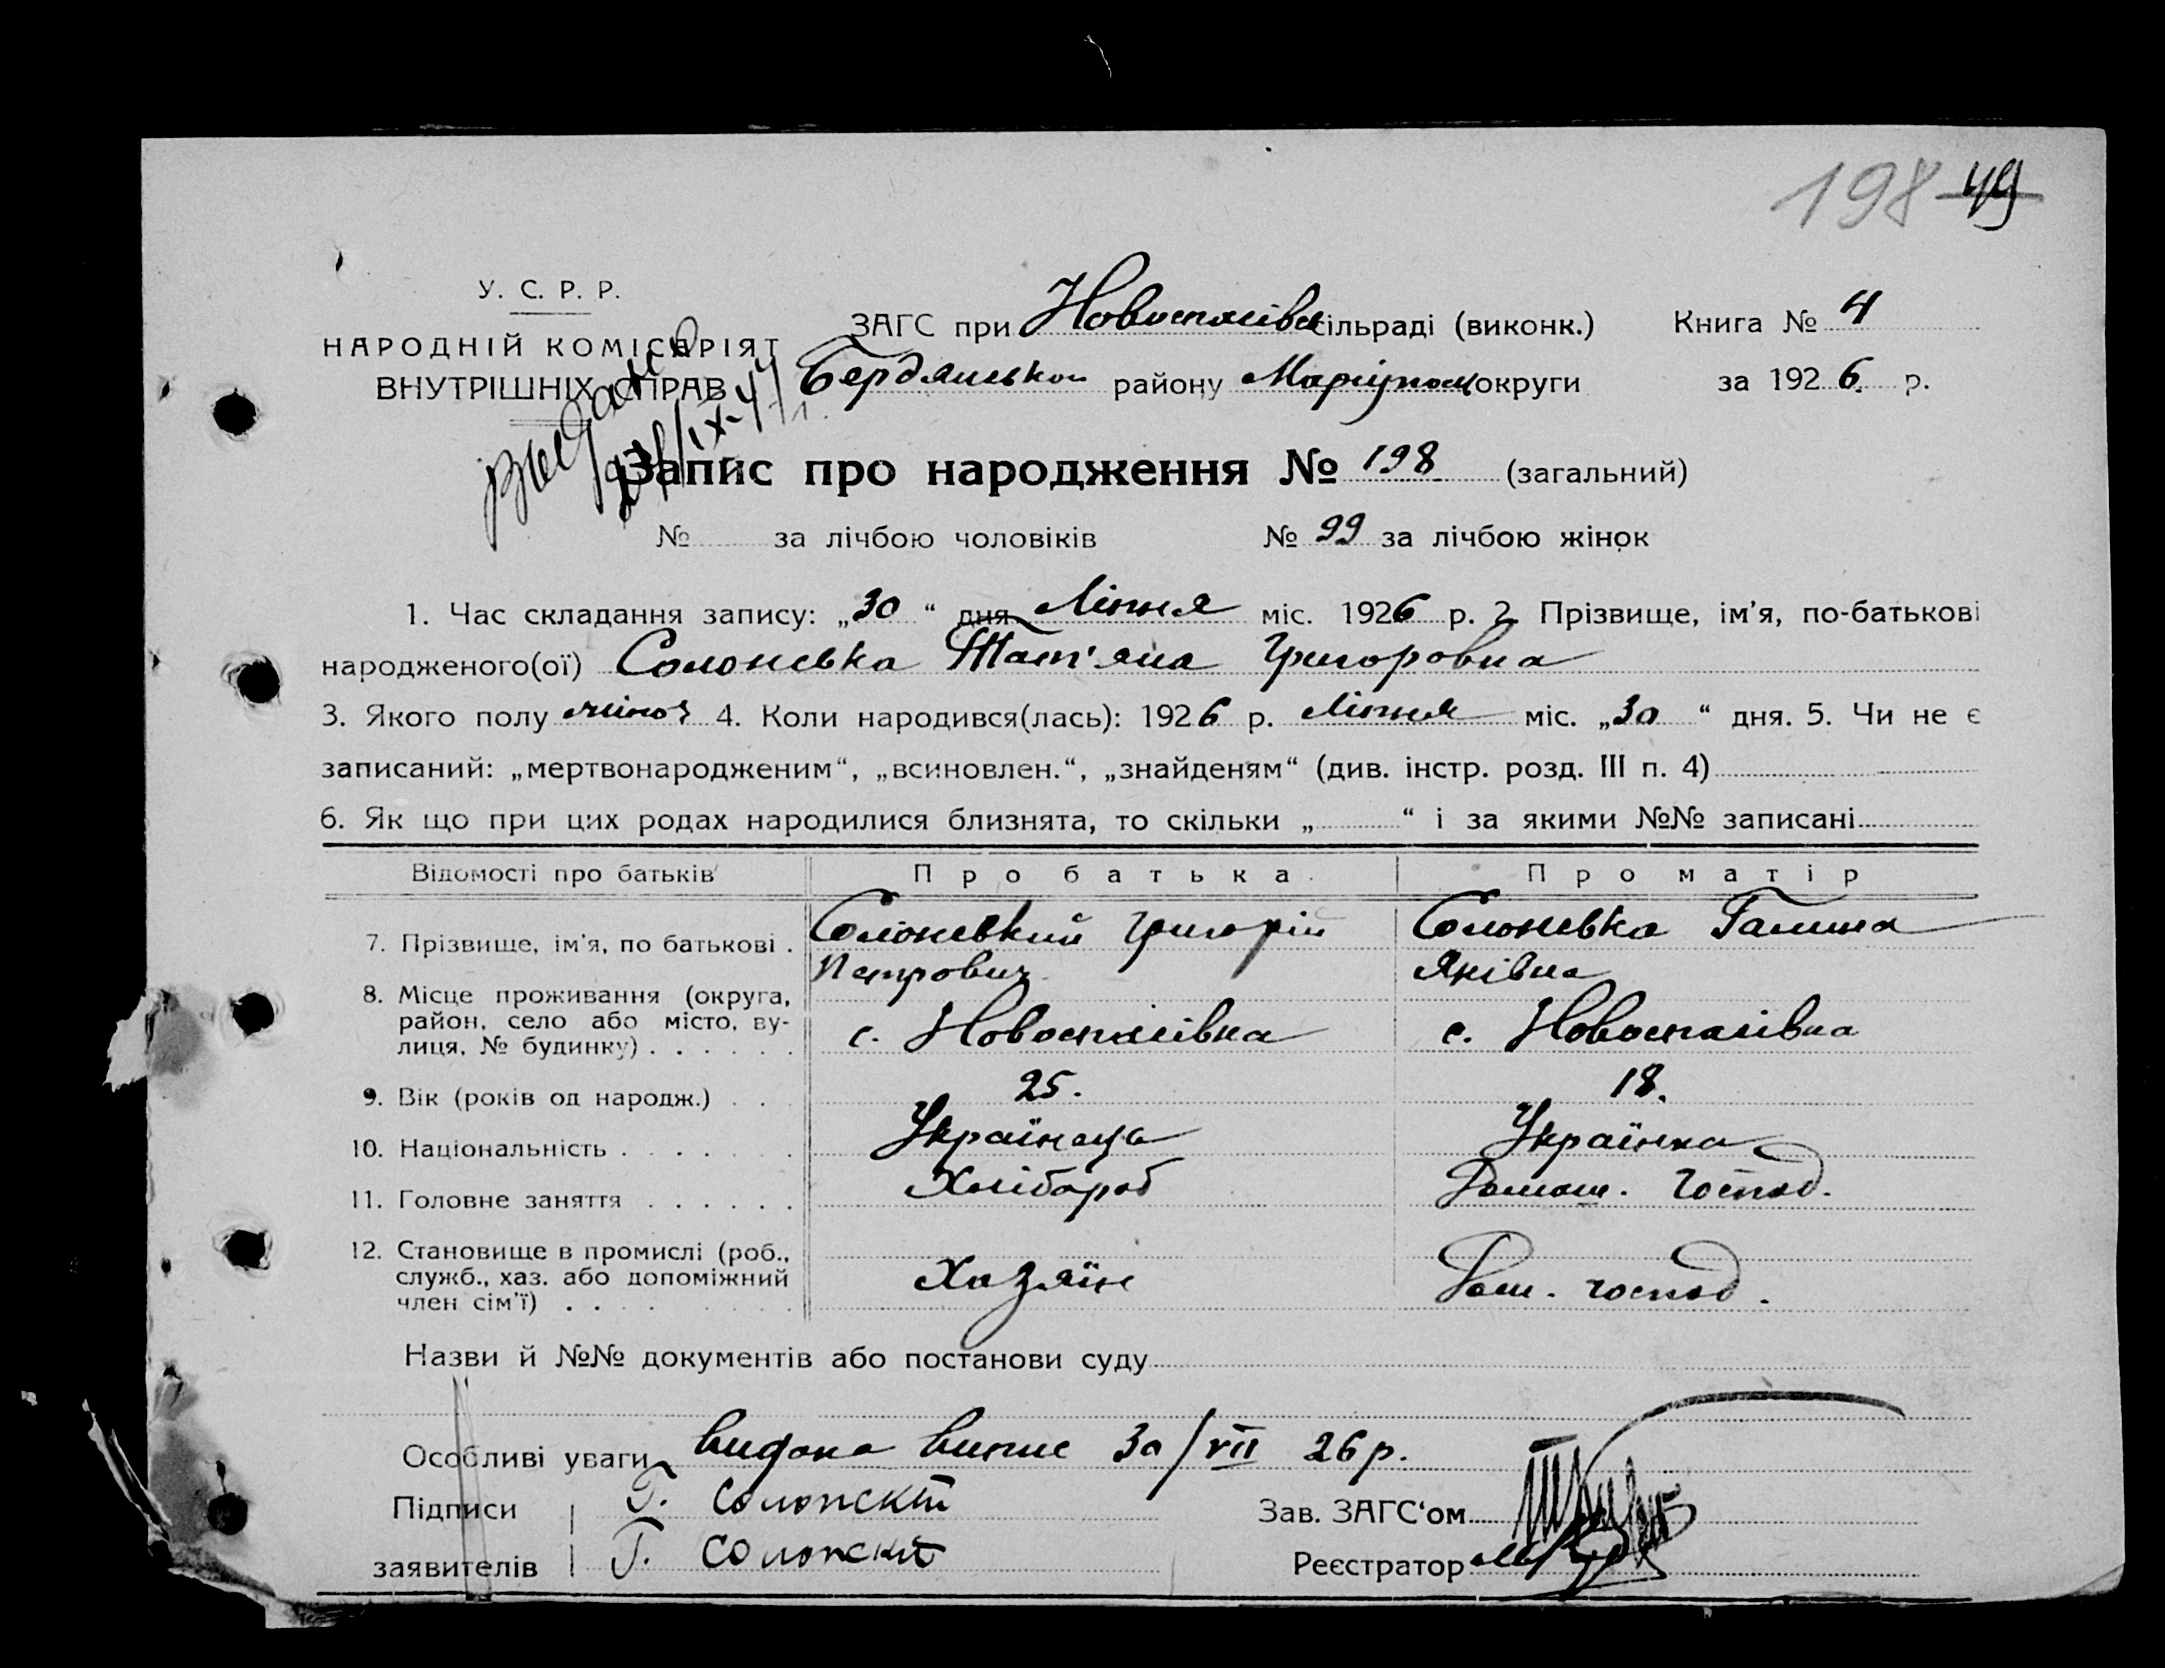 198 49
У. С. Р. Р.
НАРОДНІЙ КОМІСАРІЯТ
ВНУТРІШНІХ СПРАВ
ЗАГС при Новоспасівс сільраді (виконк.) Книга № 4
Бердянськом району Маріупольс округи за 1926 р.
Запис про народження № 198 (загальний)
№ за лічбою чоловіків № 99 за лічбою жінок
1. Час складання запису: „30“ дня Ліпня міс. 1926 р. 2. Прізвище, ім'я, по-батькові
народженого(ої) Солоневка Тат'яна Григоровна
3. Якого полу жіноч 4. Коли народився(лась): 1926 р. Ліпня міс. „30“ дня. 5. Чи не є
записаний: „мертвонародженим“, „всиновлен.“, „знайденям“ (див. інстр. розд. III п. 4)
6. Як що при цих родах народилися близнята, то скільки „ “ і за якими №№ записані
Відомості про батьків Про батька Про матір
7. Прізвище, ім'я, по батькові . Солоневкий Григорій Солоневка Галина
Петрович Яківна
8. Місце проживання (округа,
район, село або місто, ву-
лиця, № будинку) . . . . . . с. Новоспасівка с. Новоспасівка
9. Вік (років од народж.) . . . 25. 18.
10. Національність . . . . . . . Українець Українка
11. Головне заняття . . . . . . Хлібороб Домаш. господ.
12. Становище в промислі (роб.,
служб., хаз. або допоміжний
член сім'ї) . . . . Хазяїн Дом. господ.
Назви й №№ документів або постанови суду
Особливі уваги видана випис 30/VII 26 р.
Підписи Г. Солонскій Зав. ЗАГС'ом
заявителів Г. Солонскій Реєстратор